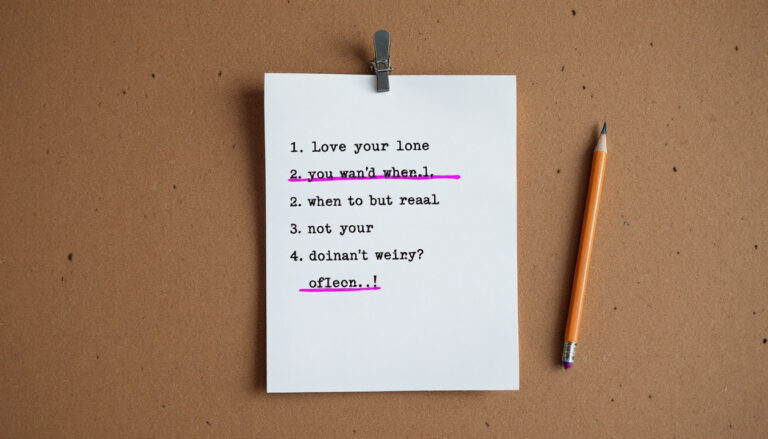 1. Love your lone
2. you wan'd when.l.
2. when to but reaal
3. not your
4. doinan't weiny?
ofIeon..!